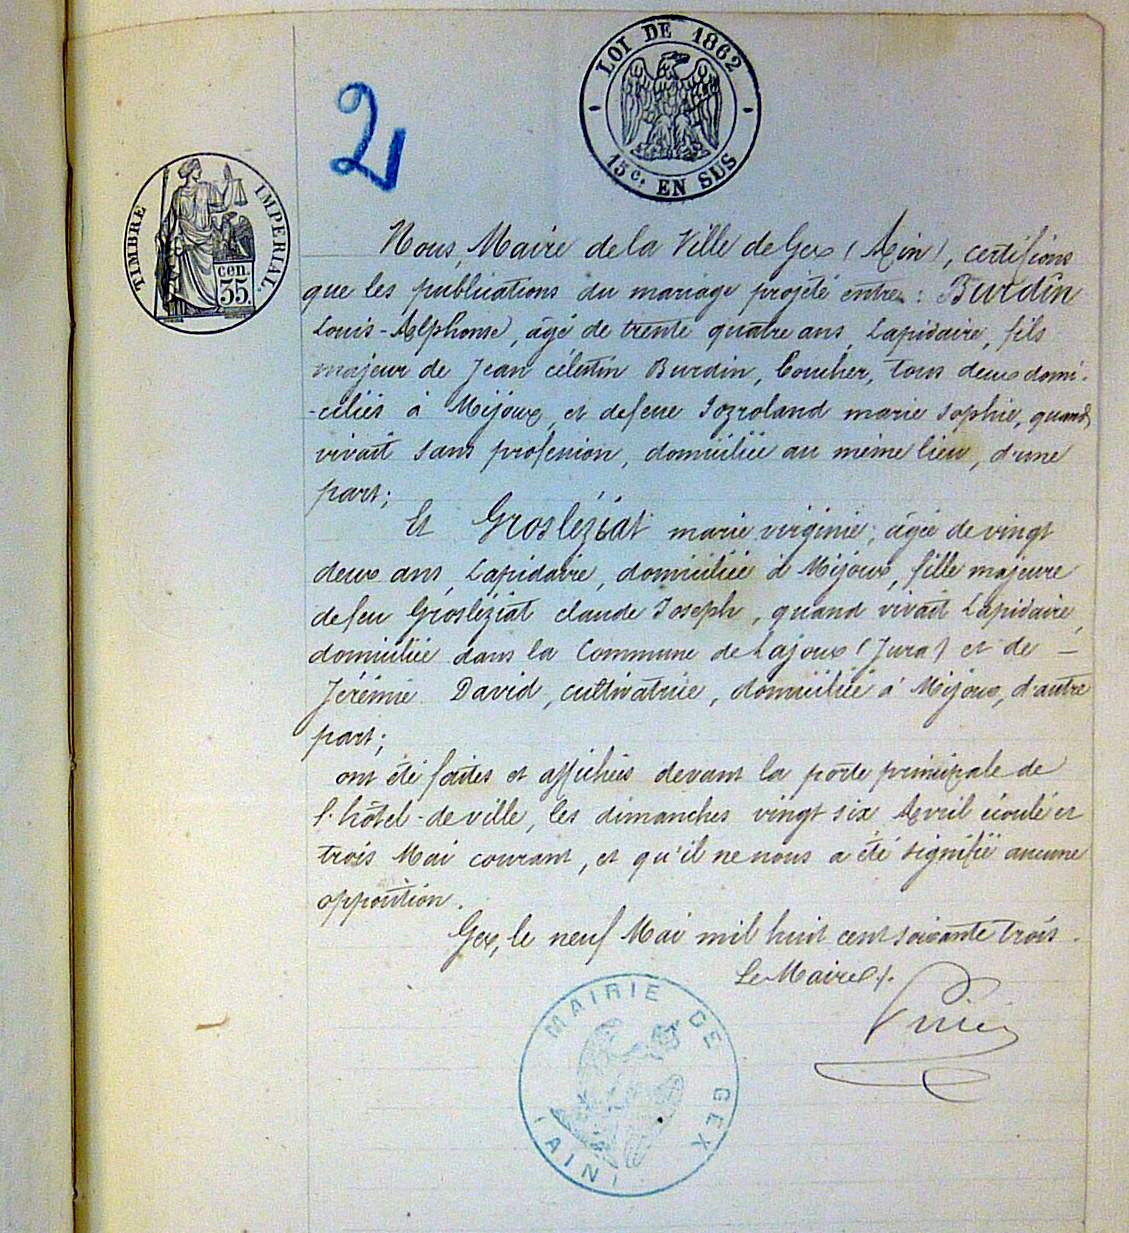 LOI DE 1862
15 c. EN SUS
2
TIMBRE IMPERIAL
cen.
35
Nous, Maire de la Ville de Gex (Ain), certifions
que les publications du mariage projeté entre : Burdin
Louis-Alphonse, âgé de trente quatre ans, Lapidaire, fils
majeur de Jean célestin Burdin, Boucher, tous deux domi-
-ciliés à Mijoux, et defeue marie Sophie, quand
vivait sans profession, domiciliée au même lieu, d'une
part;
Et Grosléziat marie virginie, âgée de vingt
deux ans, Lapidaire, domiciliée à Mijoux, fille majeure
de feu Grosléziat claude Joseph, quand vivait Lapidaire,
domiciliée dans la Commune de Lajoux (Jura) et de —
Jérémie David, cultivatrice, domiciliée à Mijoux, d'autre
part;
ont été faites et affichées devant la porte principale de
l'hôtel-de ville, les dimanches vingt six Avril écoulé et
trois Mai courant, et qu'il ne nous a été signifié aucune
opposition.
Gex, le neuf Mai mil huit cent soixante trois.
Le Maire
MAIRIE DE GEX
(AIN)